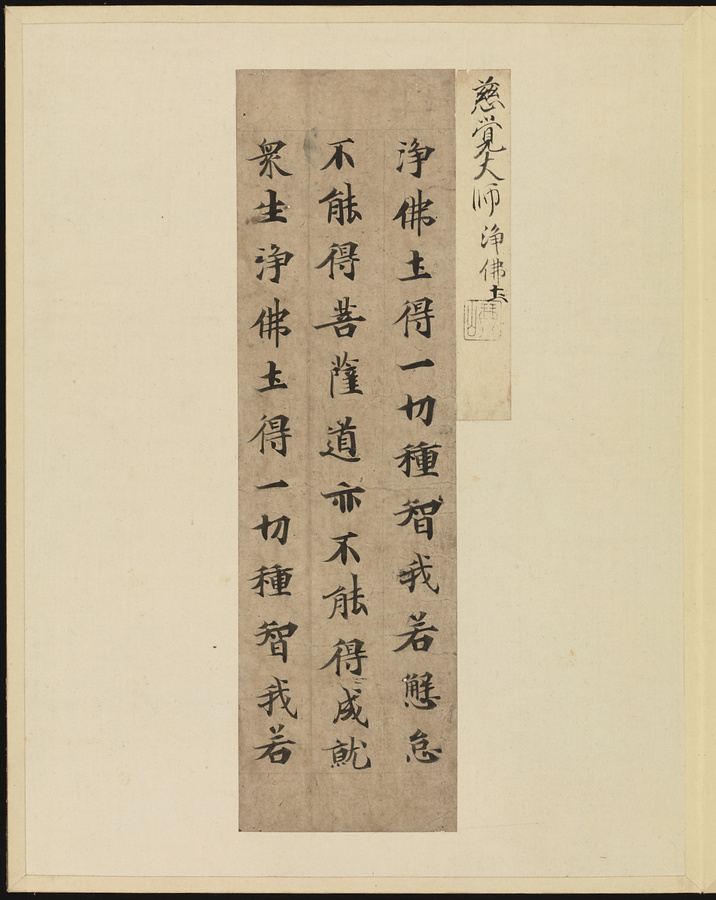 慈覚大師 浄佛土
浄佛土得一切種智我若懈怠
不能得菩薩道亦不能得成就
衆生浄佛土得一切種智我若